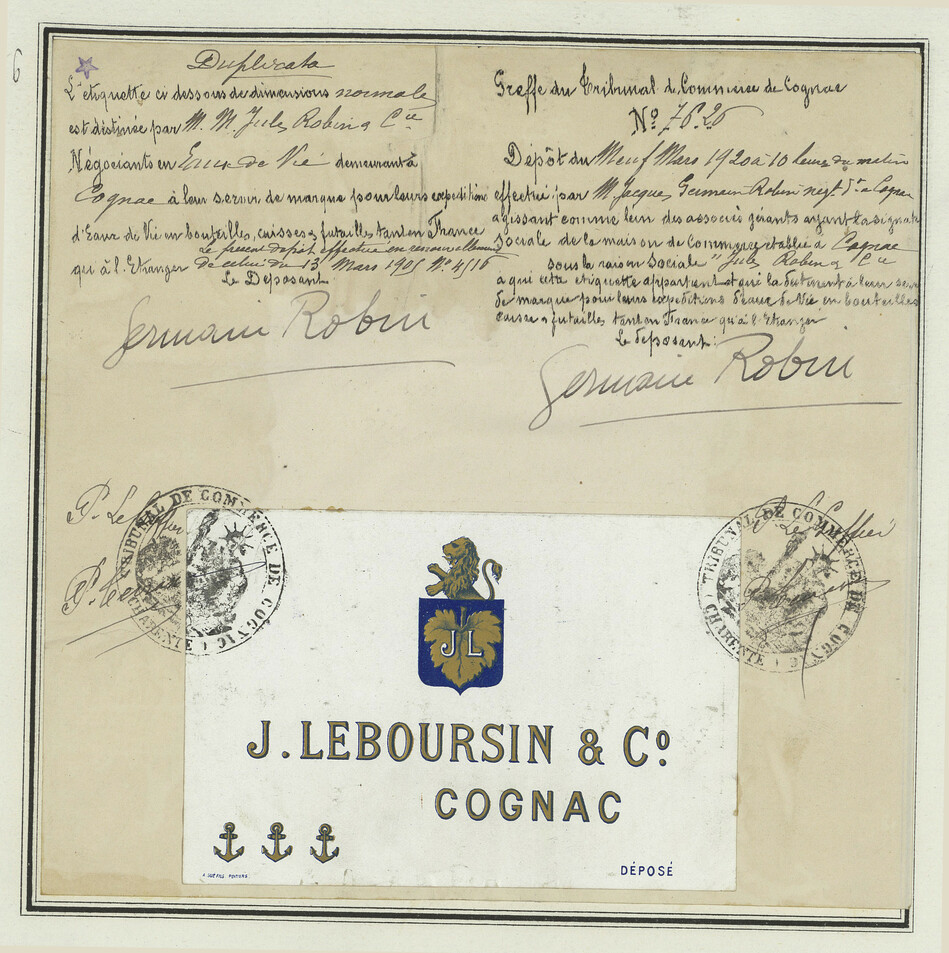 6
Duplicata
L'étiquette ci dessous de dimensions normales
est destinée par M. M. Jules Robin & Cie
Négociants en Eaux de Vie demeurant à
Cognac à leur servir de marque pour leurs expéditions
d'Eaux de Vie en bouteilles, caisses & futailles tant en France
qu'à l'Etranger
Le présent dépôt effectué en renouvellement
de celui du 13 Mars 1905 No 4516
Le Déposant
Germain Robin
Greffe du Tribunal de Commerce de Cognac
No 76.26
Dépôt du Neuf Mars 1920 à 10 heures du matin
effectué par M. Jacques Germain Robin négt dt à Cognac
agissant comme l'un des associés gérants ayant la signature
Sociale de la maison de Commerce établie à Cognac
sous la raison Sociale "Jules Robin & Cie
à qui cette étiquette appartient et qui la destinent à leur servir
de marque pour leurs expéditions d'eaux de Vie en bouteilles
caisses & futailles tant en France qu'à l'Etranger
Le déposant:
Germain Robin
P. Le Greffier
TRIBUNAL DE COMMERCE DE COGNAC
CHARENTE
P. Le Greffier
TRIBUNAL DE COMMERCE DE COGNAC
CHARENTE
JL
J. LEBOURSIN & Co
COGNAC
DÉPOSÉ